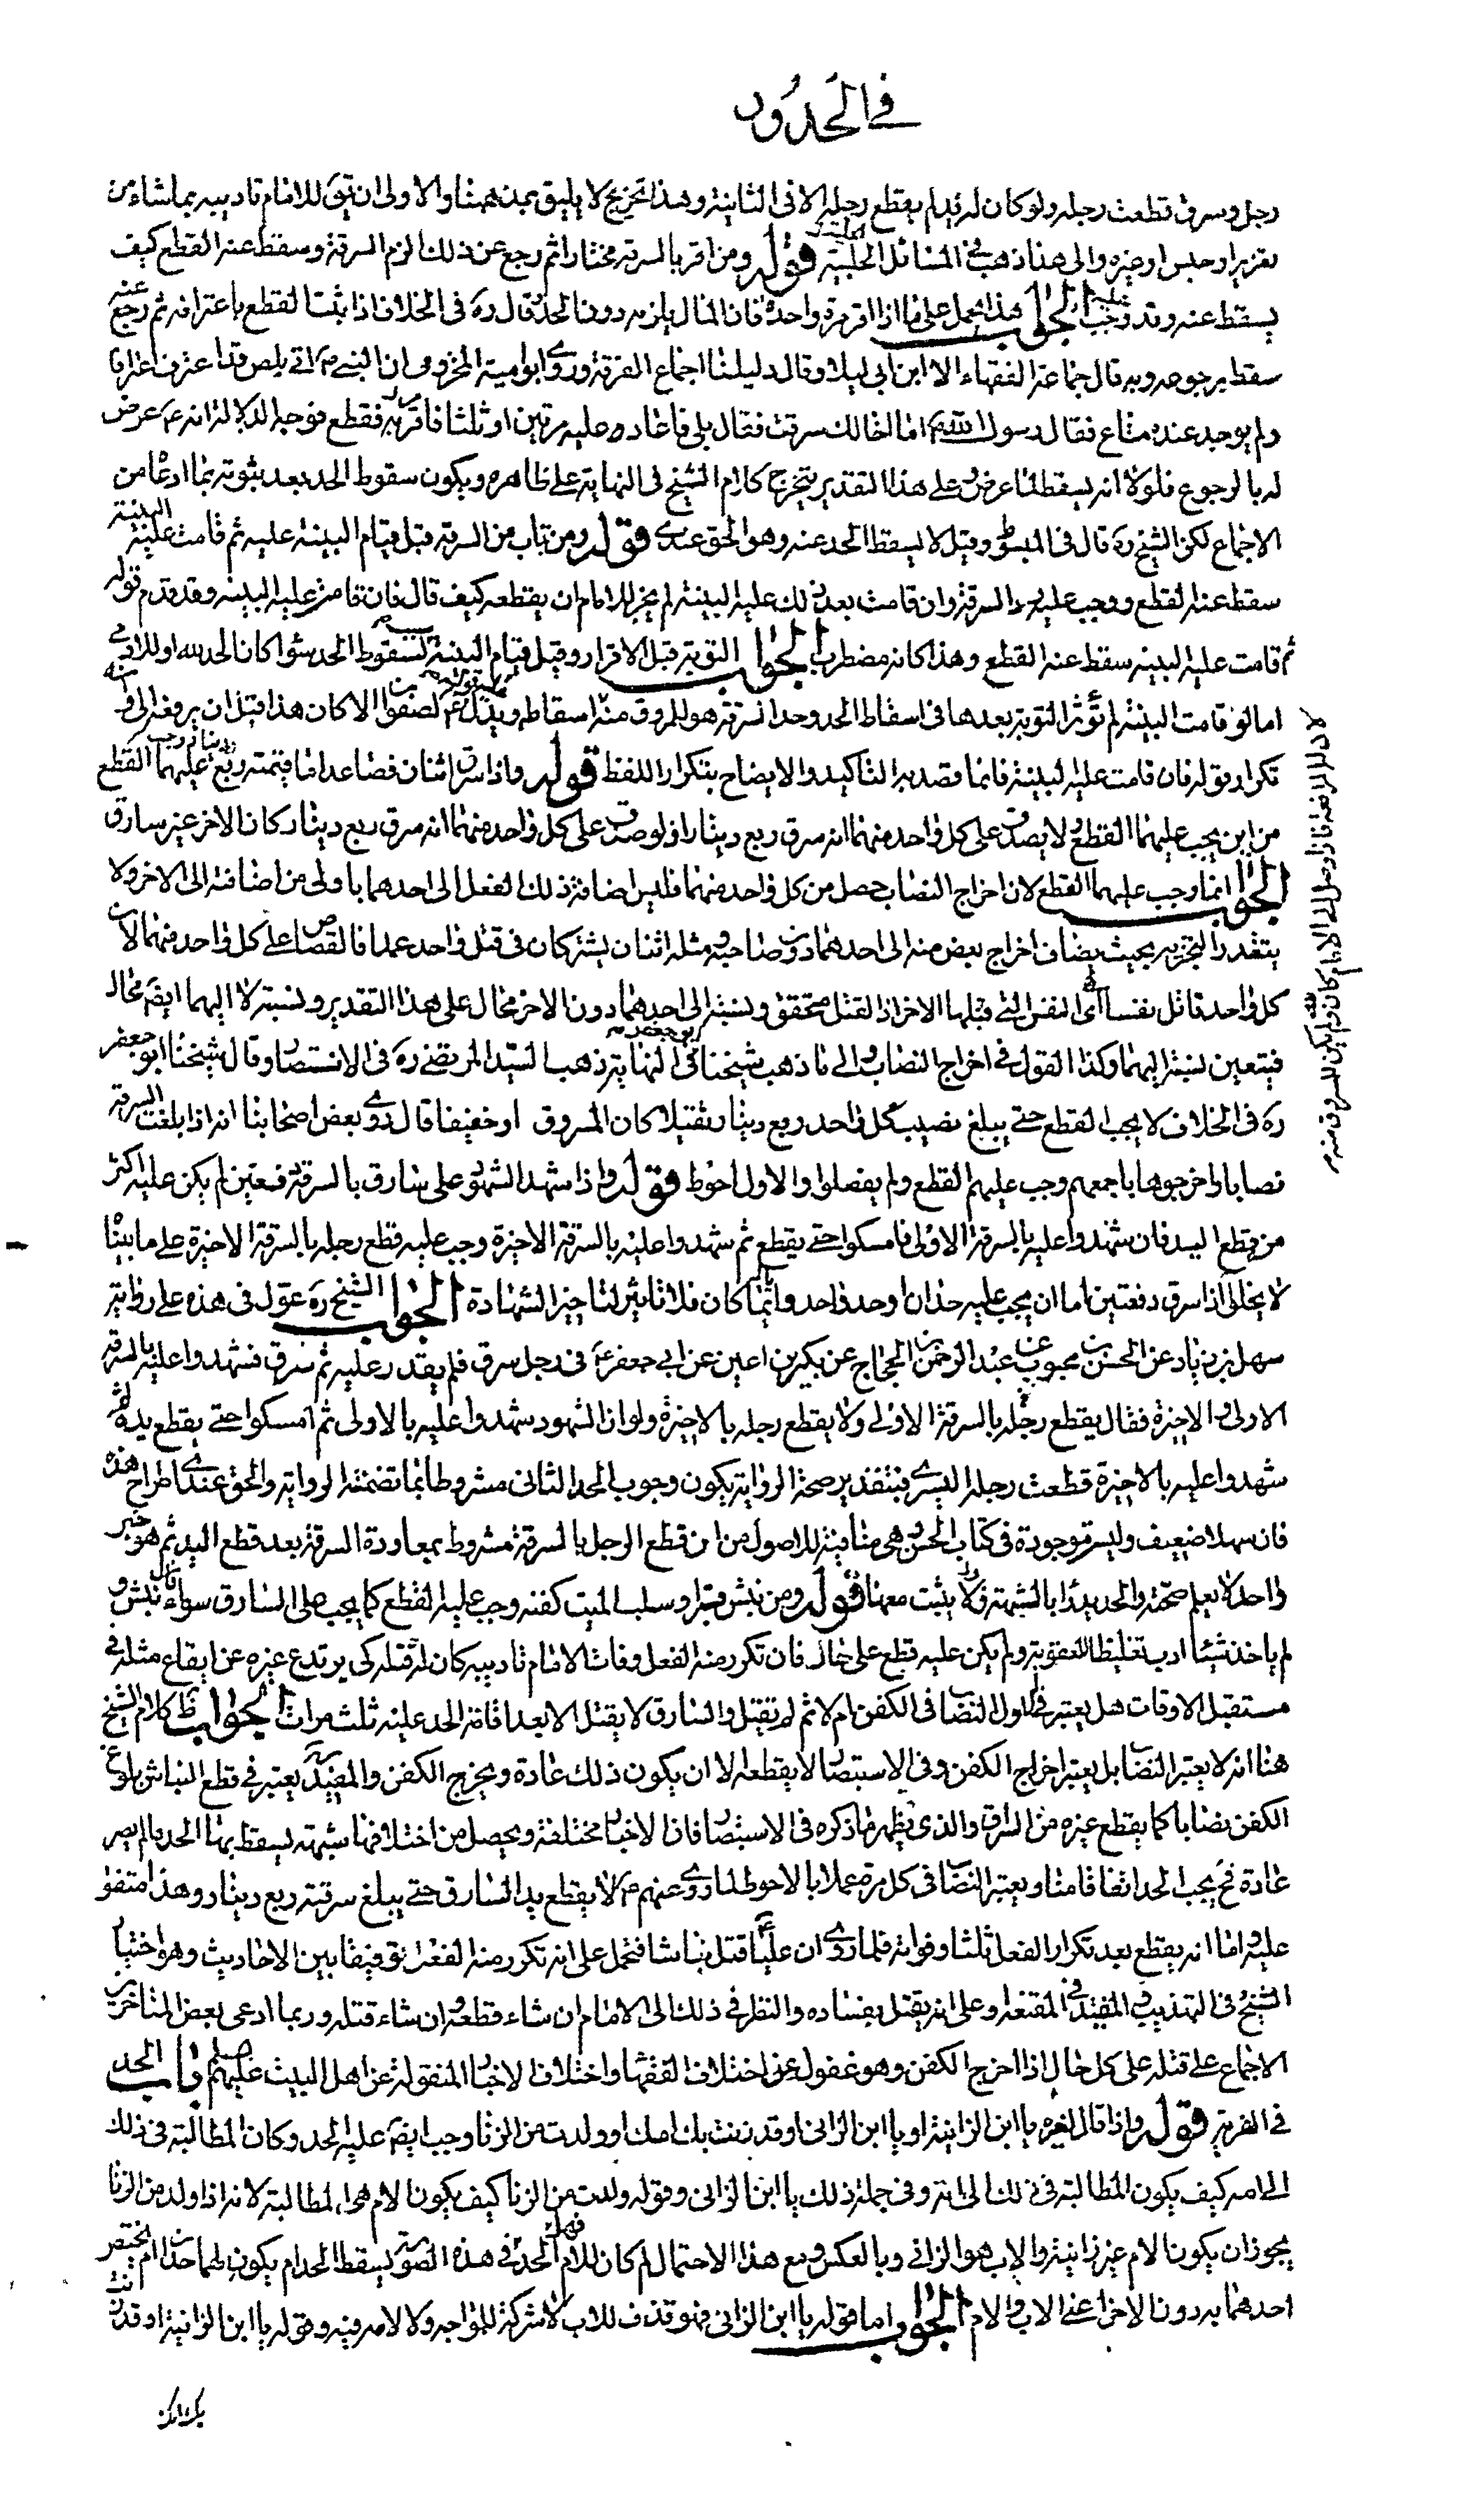 في الحدود
رجل وسرق قطعت رجله ولو كان له يد لم يقطع رجله الا في الثانية وهذا تخريج لا يليق بمذهبنا والاولى ان تبقى للامام تاديبه بما شاء من
تعزير او حبس او غيره والى هنا ذهب في المسائل الحلبية قوله ومن اقر بالسرقة مختارا ثم رجع عن ذلك الزم السرقة وسقط عنه القطع كيف
يسقط عنه وقد وجب عليه الجواب هذا يحمل على ما اذا اقر مرة واحدة فان المال يلزمه دون الحد وقال ره في الخلاف اذا ثبت القطع باعترافه ثم رجع عنه
سقط برجوعه وبه قال جماعة الفقهاء الا ابن ابي ليلا وقال دليلنا اجماع الفرقة وروى ابو امية المخزومي ان النبي ص اتي بلص قد اعترف اعترافا
ولم يوجد عنده متاع فقال رسول الله ص اما اخالك سرقت فقال بلى فاعاده عليه مرتين او ثلثا فاقر به فقطع فوجه الدلالة انه ع عرض
له بالرجوع فلولا انه يسقط لما عرض وعلى هذا التقدير يتخرج كلام الشيخ في النهاية على ظاهره ويكون سقوط الحد بعد ثبوته بما ادعاه من
الاجماع لكن الشيخ ره قال في المبسوط وقيل لا يسقط الحد عنه وهو الحق عندي قوله ومن تاب من السرقة قبل قيام البينة عليه ثم قامت عليه البينة
سقط عنه القطع ووجب عليه رد السرقة وان قامت بعد ذلك عليه البينة لم يجز للامام ان يقطعه كيف قال فان قامت عليه البينه وقد تقدم قوله
ثم قامت عليه البينه سقط عنه القطع وهذا كانه مضطرب الجواب التوبة قبل الاقرار وقبل قيام البينة سبب لسقوط الحد سواء كان الحد لله او للادمي
اما لو قامت البينة لم تؤثر التوبة بعدها في اسقاط الحد وحد السرقة هو للمروق منه اسقاطه ويدل عليه قوله ع لصفوان الا كان هذا قبل ان يرفعه الي واما
تكرار قوله فان قامت عليه البينة فانما قصد به التاكيد والايضاح بتكرار اللفظ قوله واذا سرق اثنان فصاعدا ما قيمته ربع دينار وجب عليهما القطع
من اين يجب عليهما القطع ولا يصدق على كل واحد منهما انه سرق ربع دينار اذ لو صدق على كل واحد منهما انه سرق ربع دينار كان الاخر غير سارق
الجواب انما وجب عليهما القطع لان اخراج النصاب حصل من كل واحد منهما فليس اضافة ذلك الفعل الى احدهما باولى من اضافته الى الاخر ولا
يتقدر التجزيه بحيث يضاف اخراج بعض منه الى احدهما دون صاحبه ومثله اثنان يشتركان في قتل واحد عمدا فالقصاص على كل واحد منهما لان
كل واحد قاتل نفسا اي النفس التي قتلها الاخر اذ القتل متحقق ونسبته الى احدهما دون الاخر محال على هذا التقدير ونسبته لا اليهما ايضا محال
فيتعين نسبته اليهما وكذا القول في اخراج النصاب والى ما ذهب شيخنا ابو جعفر ره في النهاية ذهب السيد المرتضى ره في الانتصار وقال شيخنا ابو جعفر
ره في الخلاف لا يجب القطع حتى يبلغ نصيب كل واحد ربع دينار ثقيلا كان المسروق او خفيفا قال وروى بعض اصحابنا انه اذا بلغت السرقة
نصابا واخرجوها باجمعهم وجب عليهم القطع ولم يفصلوا والاول احوط قوله واذا شهد الشهود على سارق بالسرقة دفعتين لم يكن عليه اكثر
من قطع اليد فان شهدوا عليه بالسرقة الاولى فامسكوا حتى يقطع ثم شهدوا عليه بالسرقة الاخيرة وجب عليه قطع رجله بالسرقة الاخيرة على ما بيناه
لا يخلوا اذا سرق دفعتين اما ان يجب عليه حدان او حد واحد وايما كان فلا تاثير لتاخير الشهادة الجواب الشيخ ره عول في هذه على رواية
سهل بن زياد عن الحسن بن محبوب عن عبد الرحمن بن الحجاج عن بكير بن اعين عن ابي جعفر ع في رجل سرق فلم يقدر عليه ثم سرق فشهدوا عليه بالسرقة
الاولى والاخيرة فقال يقطع رجله بالسرقة الاولى ولا يقطع رجله بالاخيرة ولو ان الشهود شهدوا عليه بالاولى ثم امسكوا حتى يقطع يده ثم
شهدوا عليه بالاخيرة قطعت رجله اليسرى فبتقدير صحة الرواية يكون وجوب الحد الثاني مشروطا بما تضمنته الرواية والحق عندي اطراح هذه
فان سهلا ضعيف وليس موجودة في كتاب الحسن وهي منافية للاصول من ان قطع الرجل بالسرقة مشروط بمعاودة السرقة بعد قطع اليد ثم هو خبر
واحد لا يعلم صحته والحد يدرا بالشبهة ولا يثبت معها قوله ومن نبش قبرا وسلب الميت كفنه وجب عليه القطع كما يجب على السارق سواء قال نبش و
لم ياخذ شيئا ادب تغليظا للعقوبة ولم يكن عليه قطع على حال فان تكرر منه الفعل وفات الامام تاديبه كان له قتله كي يرتدع غيره عن ايقاع مثله في
مستقبل الاوقات هل يعتبر في الاول النصاب في الكفن ام لا ثم لم يقتل والسارق لا يقتل الا بعد اقامة الحد عليه ثلث مرات الجواب ظ كلام الشيخ
هنا انه لا يعتبر النصاب بل يعتبر اخراج الكفن وفي الاستبصار لا يقطعه الا ان يكون ذلك عادة ويخرج الكفن والمفيد ره يعتبر في قطع النباش بلوغ
الكفن نصابا كما يقطع غيره من السراق والذي يظهر ما ذكره في الاستبصار فان الاخبار مختلفة ويحصل من اختلافها شبهة يسقط بها الحد ما لم يصر
عادة فح يجب الحد اتفاقا منا ويعتبر النصاب في كل مرة عملا بالاحوط لما روي عنهم ع لا يقطع يد السارق حتى يبلغ سرقته ربع دينار وهذا متفق
عليه واما انه يقطع بعد تكرار الفعل ثلثا وفواته فلما روي ان عليا ع قتل نباشا فتحمل على انه تكرر منه الفعل توفيقا بين الاحاديث وهو اختيار
الشيخ في التهذيب والمفيد في المقنعة وعلى انه يقتل بفساده والنظر في ذلك الى الامام ان شاء قطعه وان شاء قتله وربما ادعى بعض المتاخرين
الاجماع على قتله على كل حال اذا اخرج الكفن وهو غفول عن اختلاف الفقهاء واختلاف الاخبار المنقولة عن اهل البيت عليهم باب الحد
في الفرية قوله واذا قال لغيره يا ابن الزانية او يا ابن الزاني او قد زنت بك امك او ولدت من الزنا وجب ايضا عليه الحد وكان المطالبة في ذلك
الى امه كيف يكون المطالبة في ذلك الى امه وفي جملة ذلك يا ابن الزاني وقوله ولدت من الزنا كيف يكون لامه المطالبة لانه اذا ولد من الزنا
يجوز ان يكون الام غير زانية والاب هو الزاني وبالعكس ومع هذا الاحتمال لم كان للام الحد فهل في هذه الصورة يسقط الحد ام يكون لهما حدان ام يختص
احدهما به دون الاخر اعني الاب والام الجواب اما قوله يا ابن الزاني فهو قذف للاب لا شركة للمواجه ولا لامه فيه وقوله يا ابن الزانية او قد زنت
بك امك